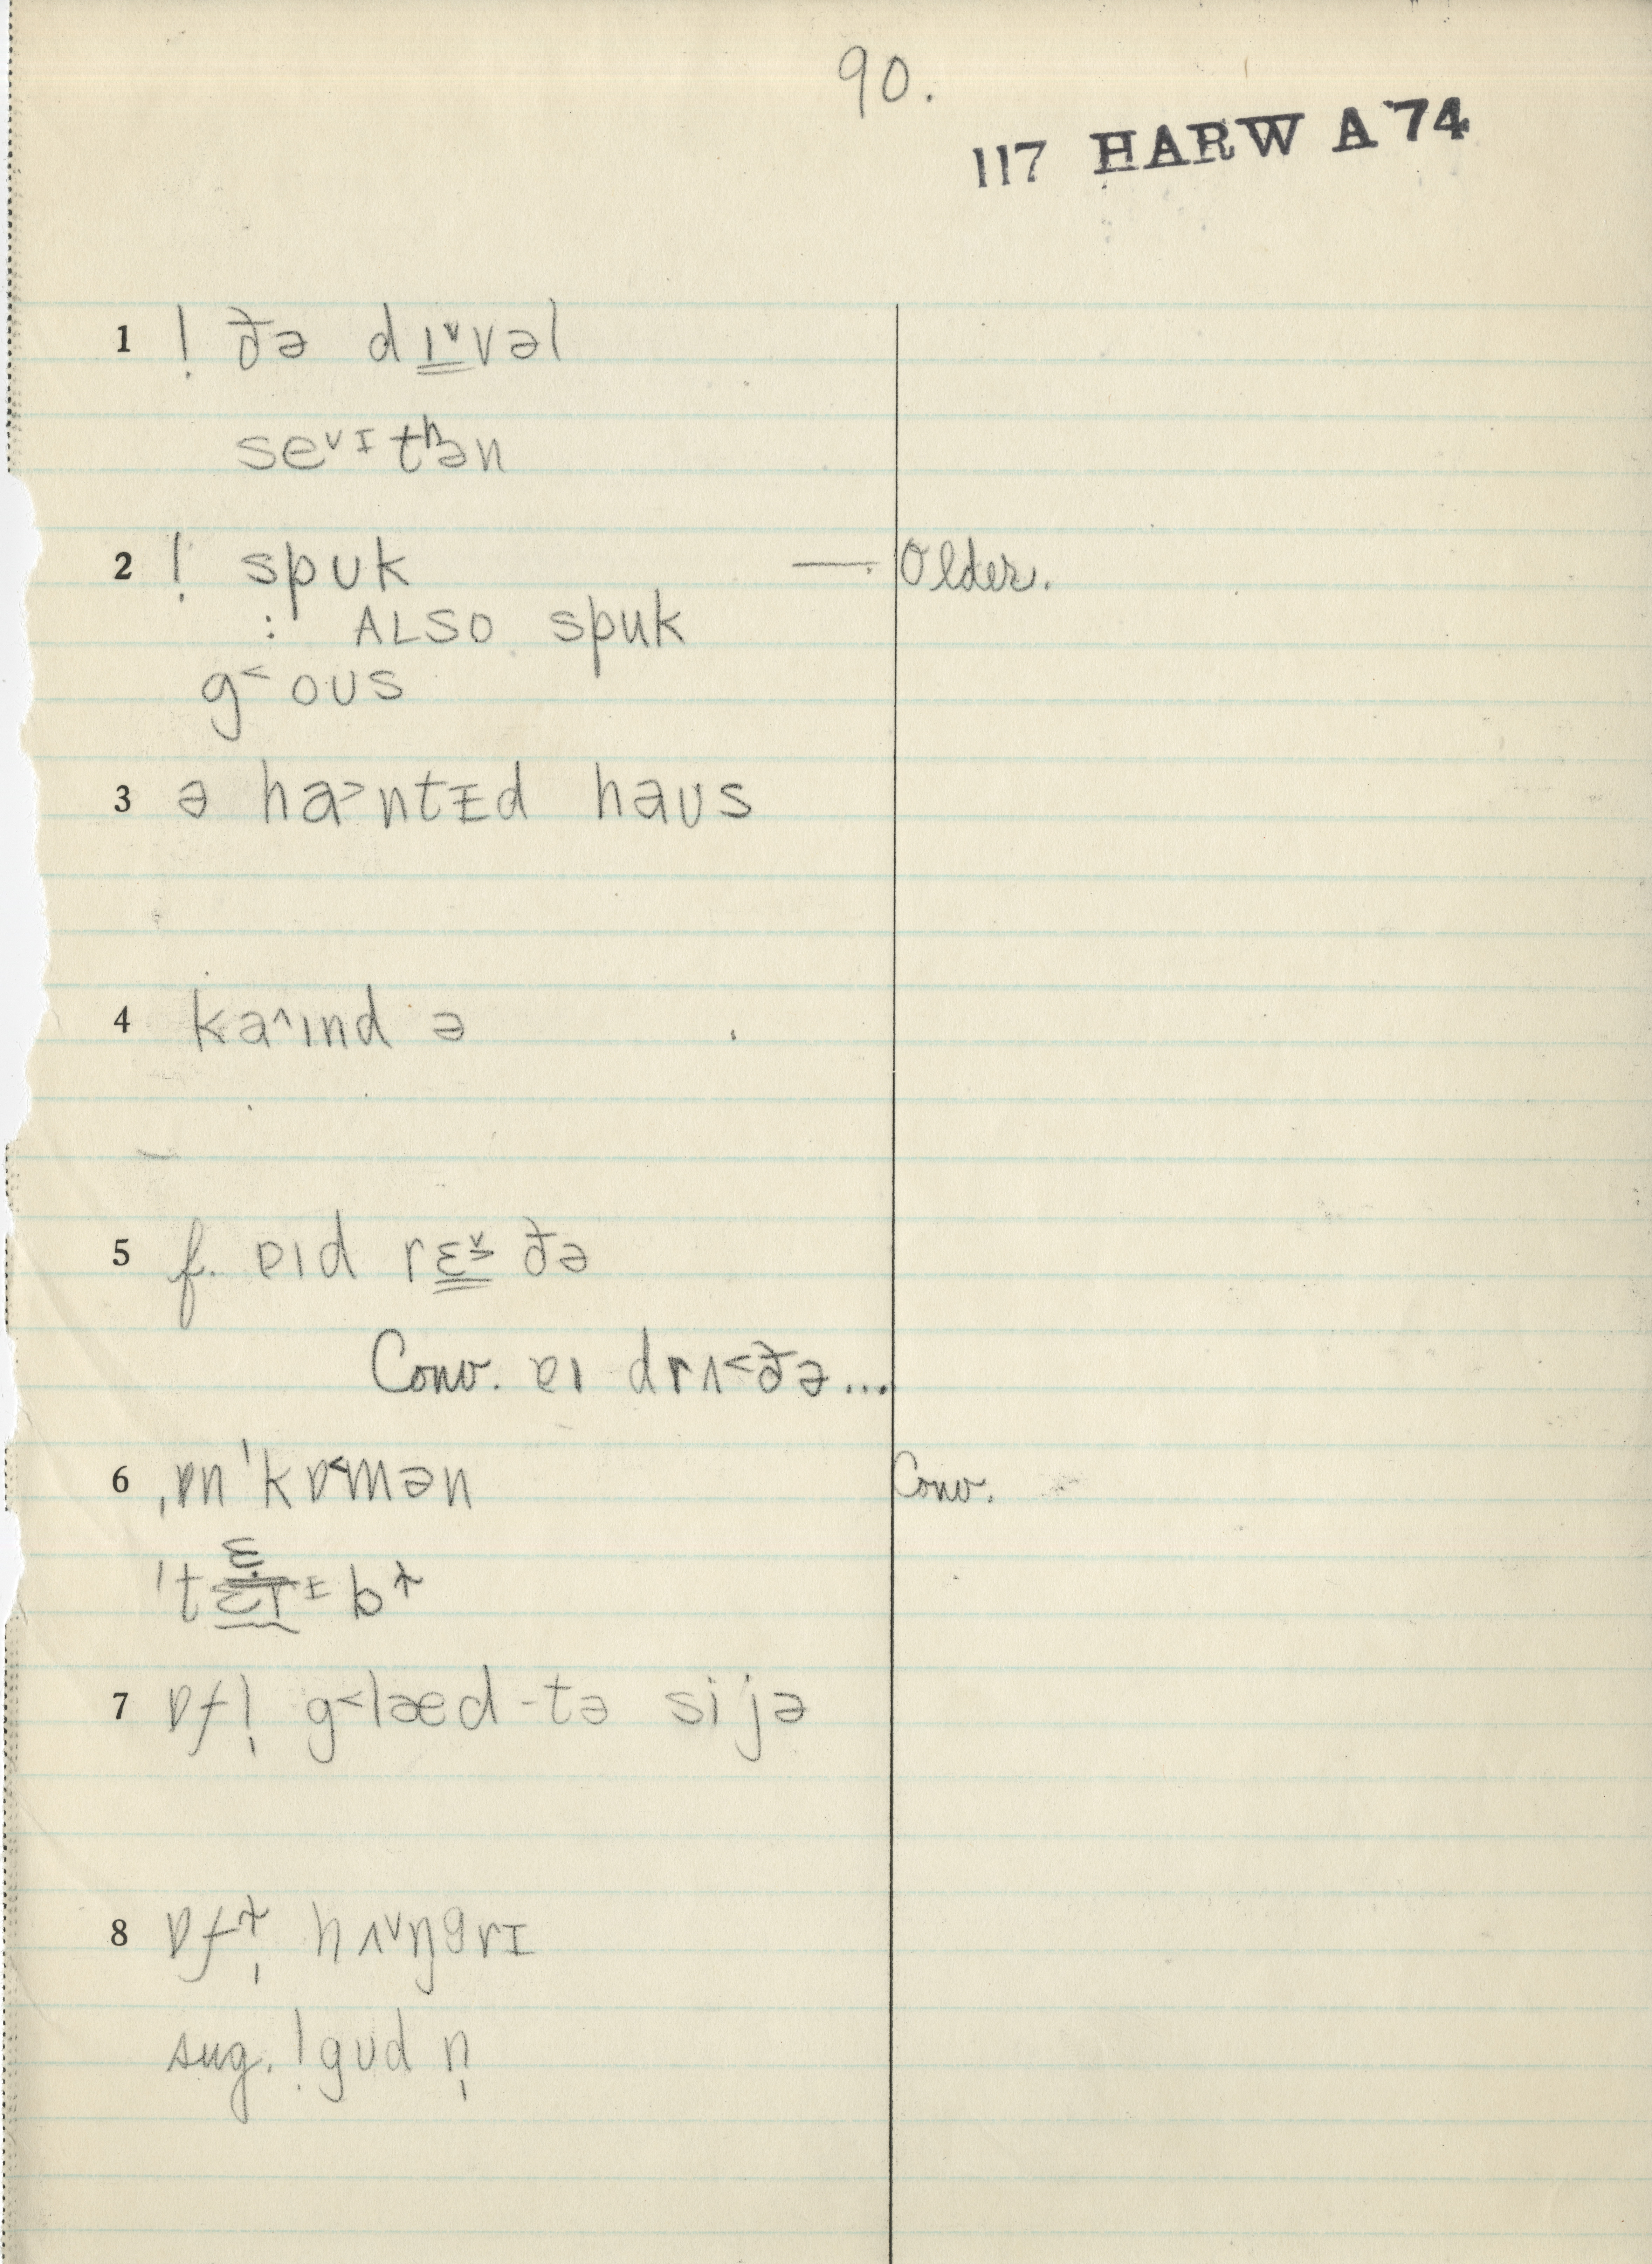 90.
117 HARW A '74
1 ! ðə dɪ̳ˇvəl
seˇɪtʰən
2 ! spuk —. Older.
: ALSO spʊk
g˂oʊs
3 ə ha˃ntɪd haʊs
4 ka˄ɪnd ə
5 f. ɐɪd rɛ̳ˇ ðə
Conv. ɐɪ drʌ˂ðə...
6 ˌɒn ˈkɒ˂mən Conv.
7 ɒf! g˂læd-tə si jə
8 hʌˇŋgrɪ
sug. !gʊd n̩